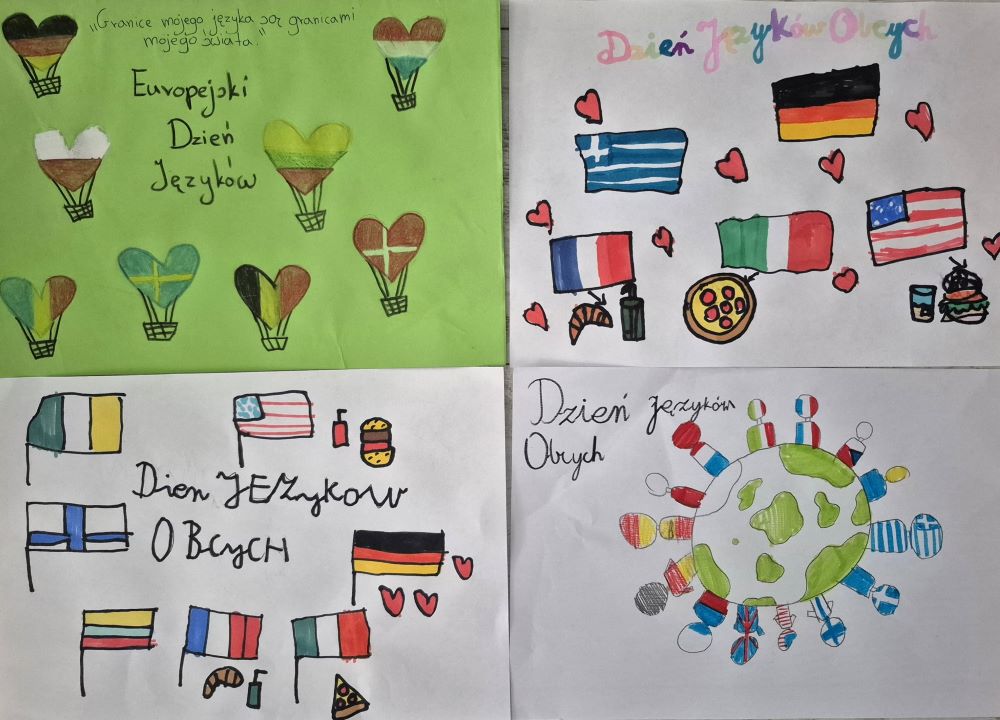 „Granice mojego języka są granicami
mojego świata."
Europejski
Dzień
Języków
Dzień Języków Obcych
Dien JEZykow
OBcych
Dzień języków
Obcych